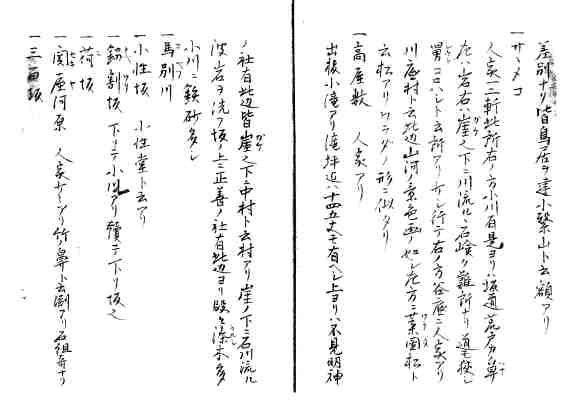 差別ナリ皆鳥居ヲ建小繋山ト云額アリ
一サヽメコ
人家二三軒此所右ノ方小川有是ヨリ坂道荒戸カ鼻
左ハ岩石ノ崖之下ニ川流ル石嶮ク難所ナリ道モ狭シ
男コロハシト云所アリ少シ行テ右ノ方谷底ニ人家アリ
川底村ト云此辺山河ノ景色画ノ如シ左方ニ葉園松ト
云松アリワラダノ形ニ似タリ
一高屋敷 人家アリ
出張小滝アリ滝坪迄ハ十四五丈モ有ヘシ上ヨリハ不見明神
ノ社有此辺皆崖之下ニ中村ト云村アリ崖ノ下ニ石川流ル
波岩ヲ洗フ坂ノ上ニ正善ノ社有此辺ヨリ段々漆木多
小川ニ鉄砂多シ
一馬別川
一小性坂 小性堂ト云アリ
一釼割坂 下リテ小川アリ續テ下リ坂之
一荷坂
一関屋河原 人家少シアリ竹ノ鼻ト云渕アリ石組奇ナリ
一三面坂